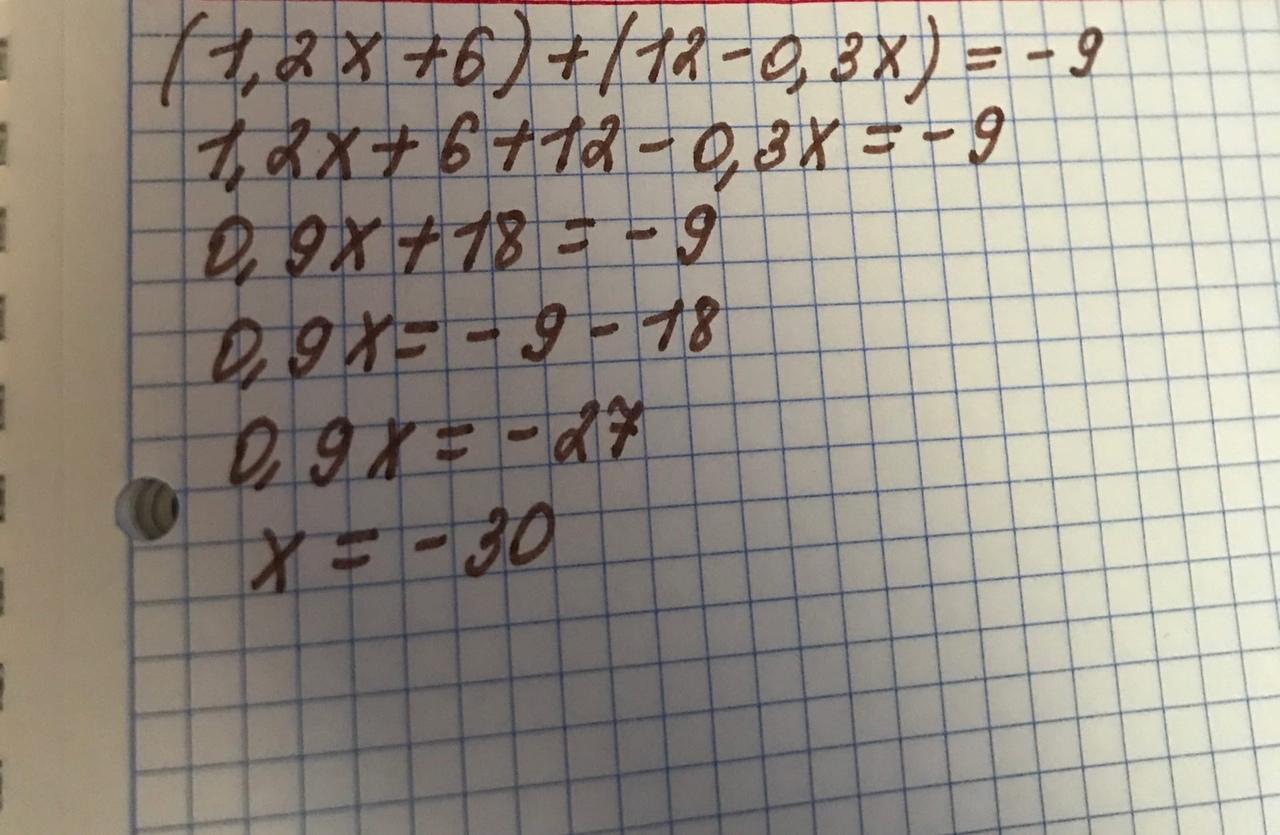 (1,2x+6)+(12-0,3x)=-9
1,2x+6+12-0,3x=-9
0,9x+18=-9
0,9x=-9-18
0,9x=-27
x=-30